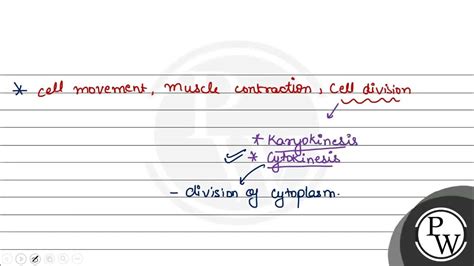 * Cell movement, Muscle contraction, Cell division
* Karyokinesis
* Cytokinesis
- division of cytoplasm.
P
W
PW